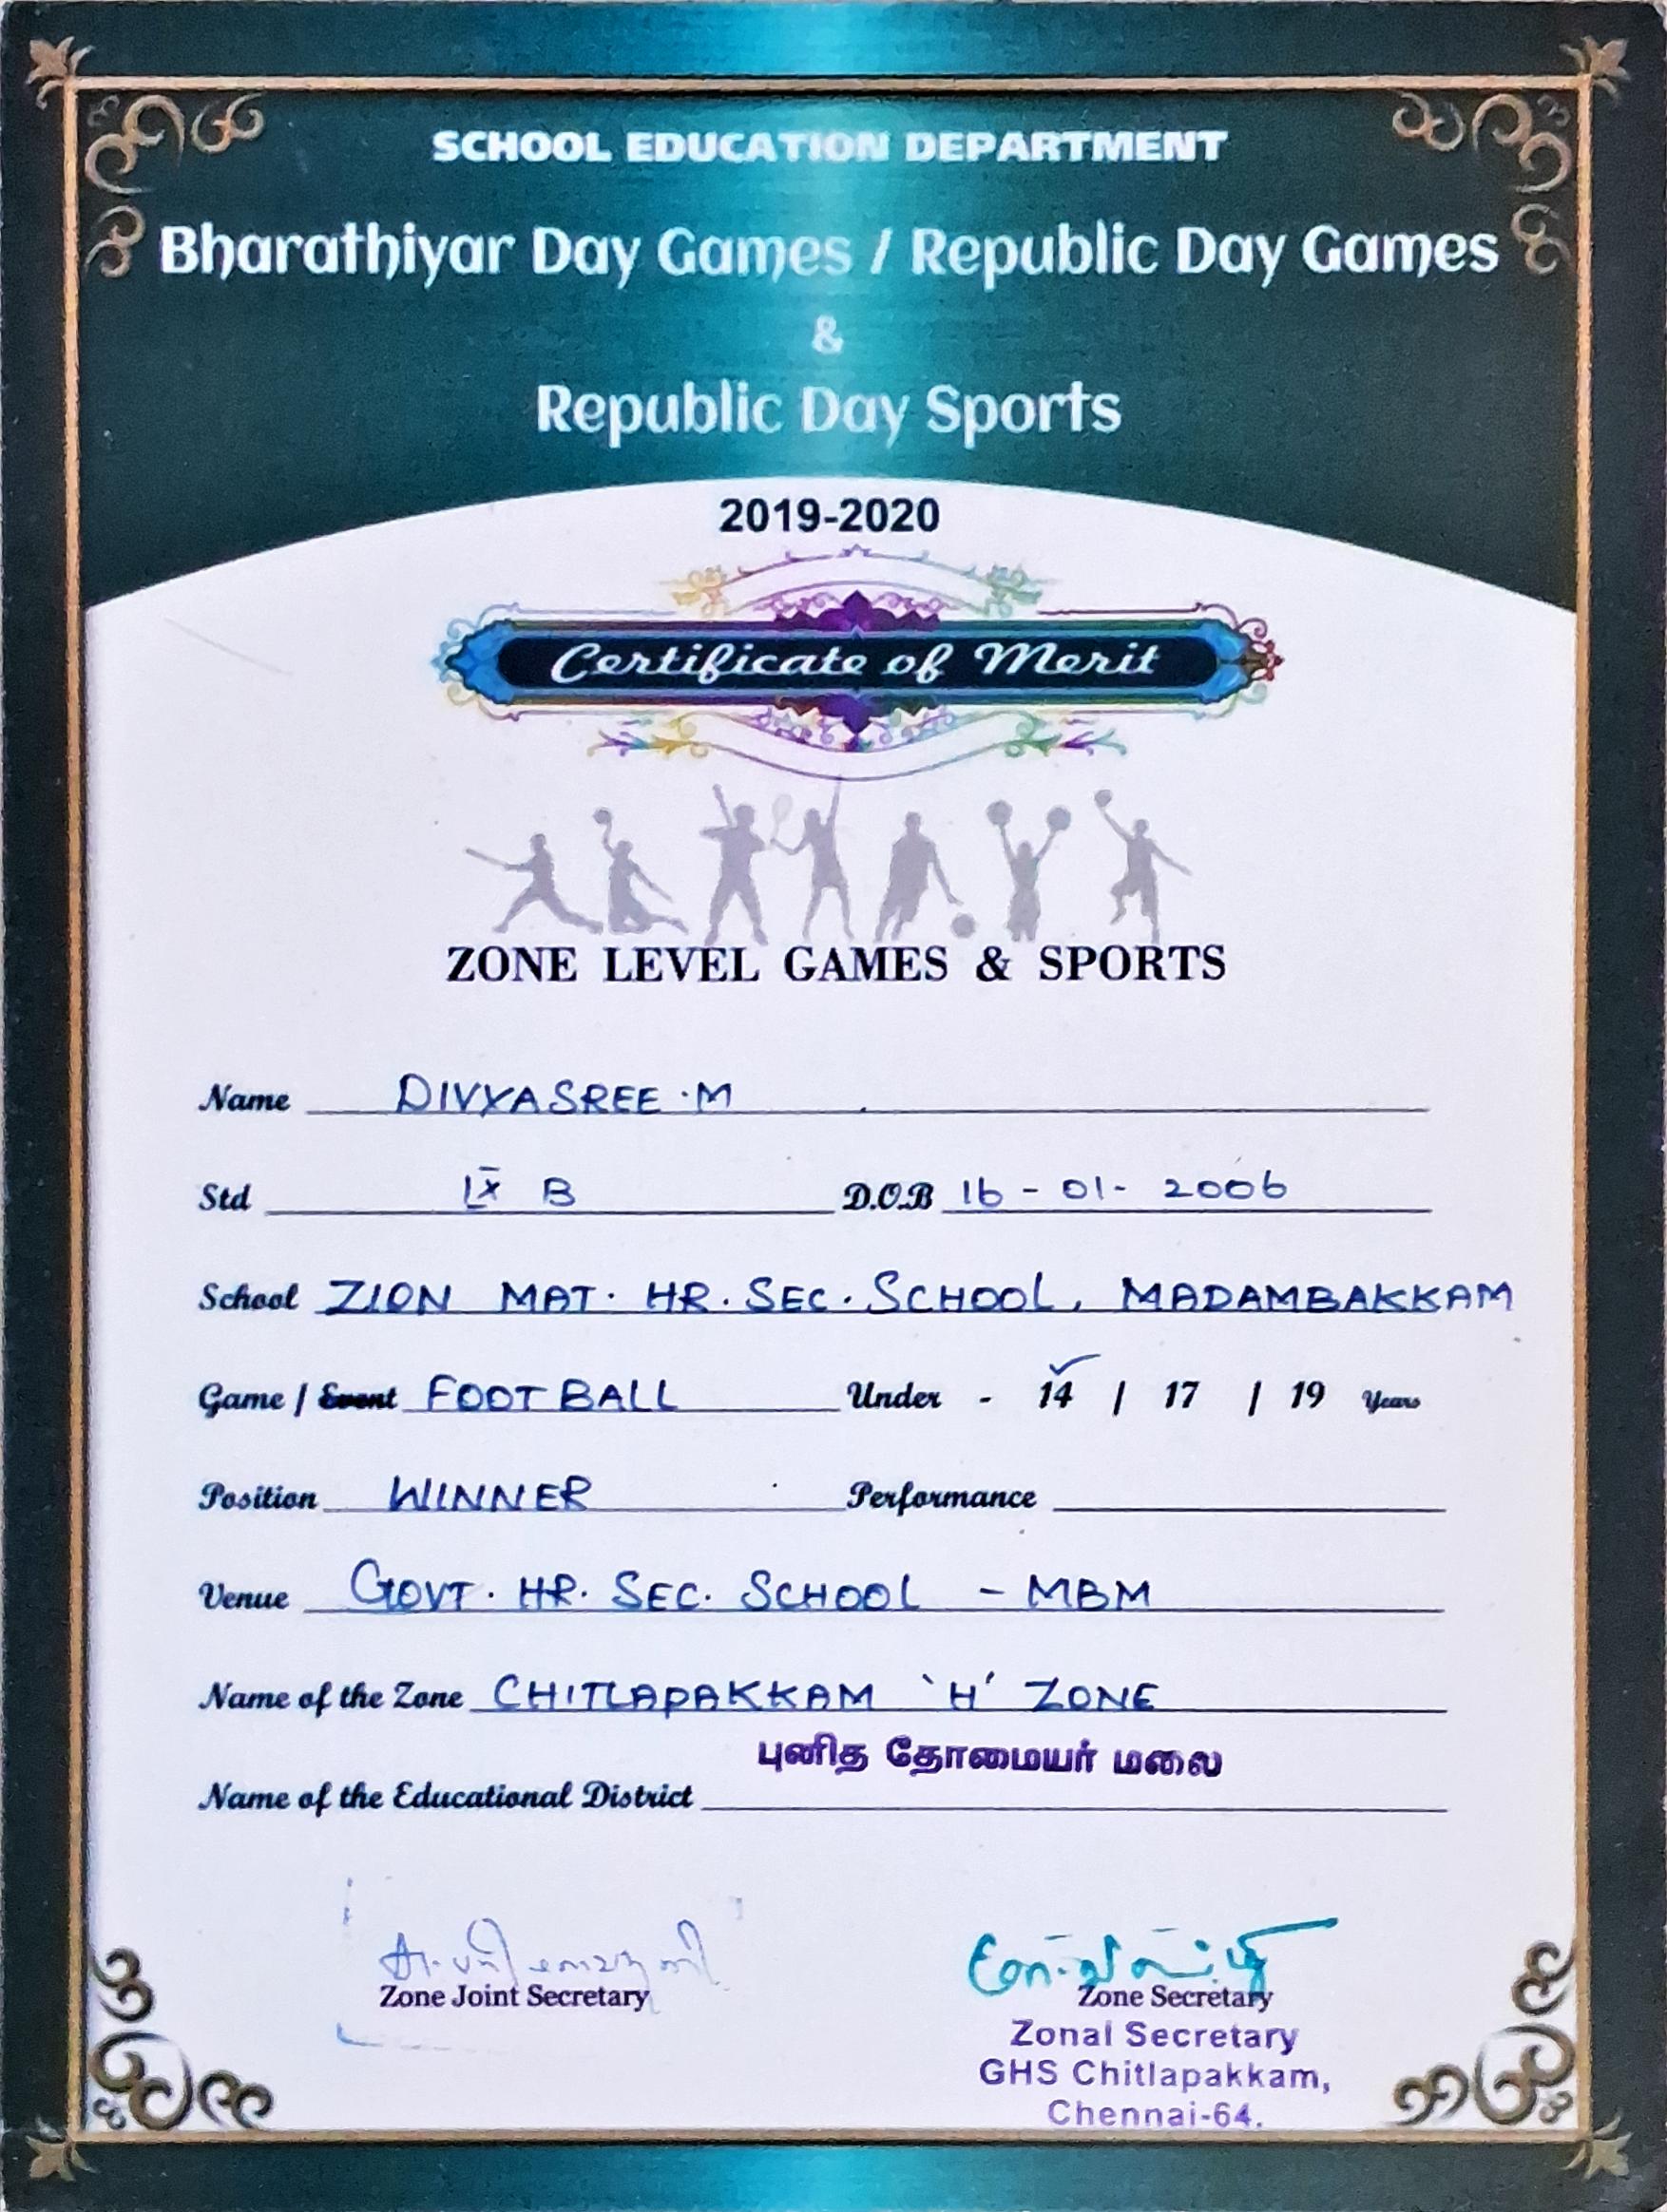 SCHOOL EDUCATION DEPARTMENT
Bharathiyar Day Games / Republic Day Games
&
Republic Day Sports
2019-2020
Certificate of Merit
ZONE LEVEL GAMES & SPORTS
Name DIVYASREE.M
Std IX B D.O.B 16-01-2006
School ZION MAT. HR. SEC. SCHOOL, MADAMBAKKAM
Game / Event FOOT BALL Under - 14 / 17 / 19 Years
Position WINNER Performance
Venue GOVT. HR. SEC. SCHOOL - MBM
Name of the Zone CHITLAPAKKAM 'H' ZONE
புனித தோமையர் மலை
Name of the Educational District
Zone Joint Secretary Zone Secretary
Zonal Secretary
GHS Chitlapakkam,
Chennai-64.